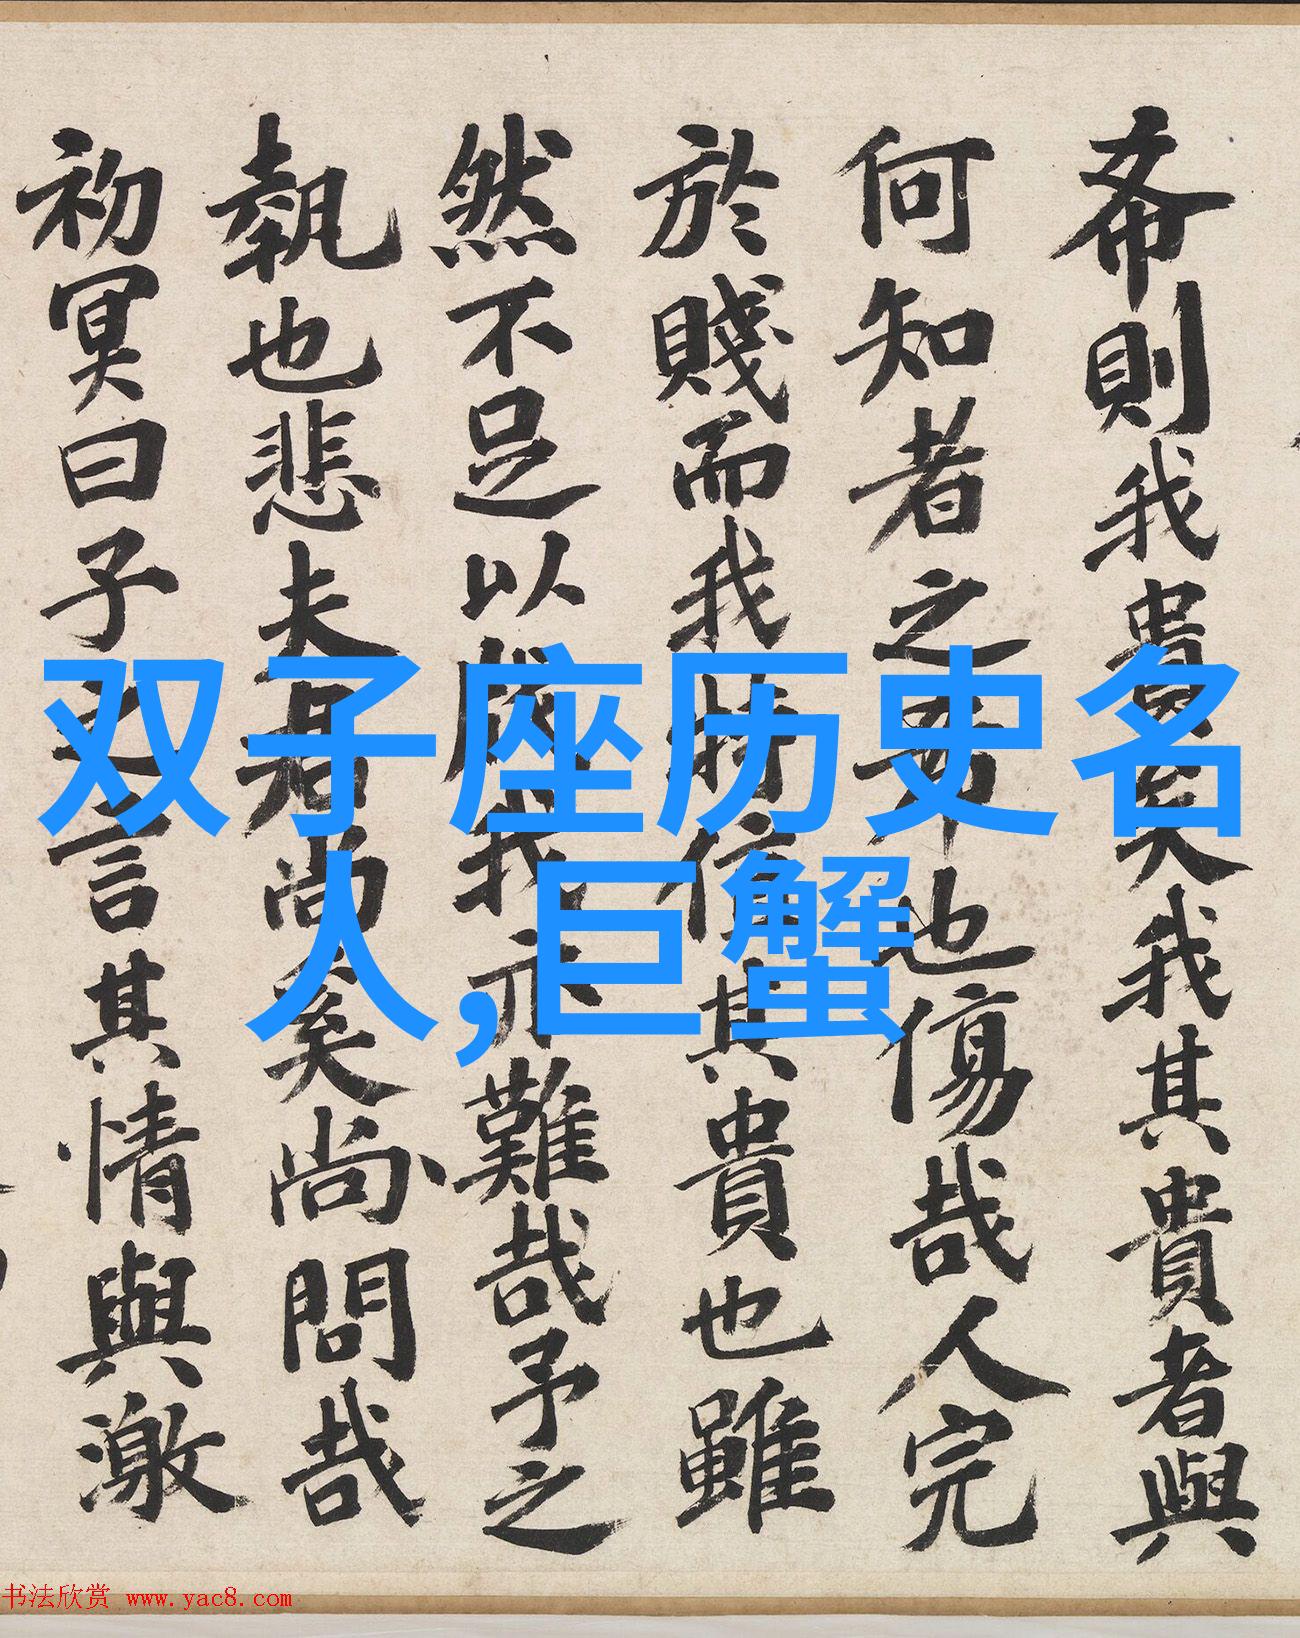 希則我貴矣我其貴者與
何知者之也傷哉人完
於賤而我特信其貴也雖
然不足以我亦難哉予之
執也悲夫君尚矣尚問哉
初冥曰子之言其情與激
双子座历史名
人,巨蟹
书法欣赏 www.yac8.com